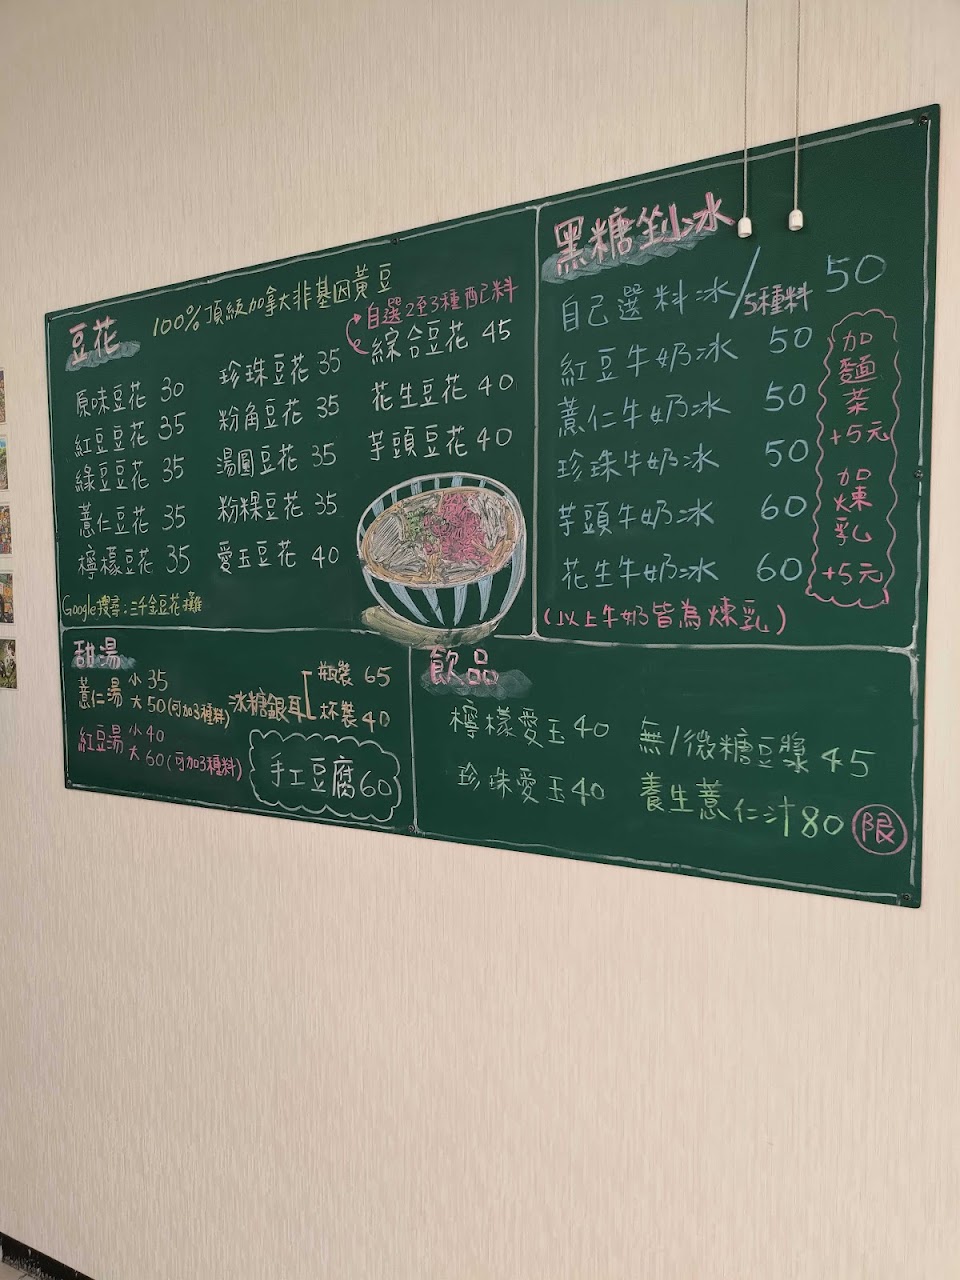 豆花
100%頂級加拿大非基因黃豆
原味豆花 30
紅豆豆花 35
綠豆豆花 35
薏仁豆花 35
檸檬豆花 35
珍珠豆花 35
粉角豆花 35
湯圓豆花 35
粉粿豆花 35
愛玉豆花 40
自選2至3種配料
綜合豆花 45
花生豆花 40
芋頭豆花 40
Google搜尋:三千金豆花
黑糖剉冰
自己選料冰/5種料 50
紅豆牛奶冰 50
薏仁牛奶冰 50
珍珠牛奶冰 50
芋頭牛奶冰 60
花生牛奶冰 60
(以上牛奶皆為煉乳)
加麵茶+5元
加煉乳+5元
甜湯
薏仁湯 小35
大50(可加3種料)
紅豆湯 小40
大60(可加3種料)
冰糖銀耳 瓶裝 65
杯裝 40
手工豆腐60
飲品
檸檬愛玉40
珍珠愛玉40
無/微糖豆漿 45
養生薏仁汁80 限